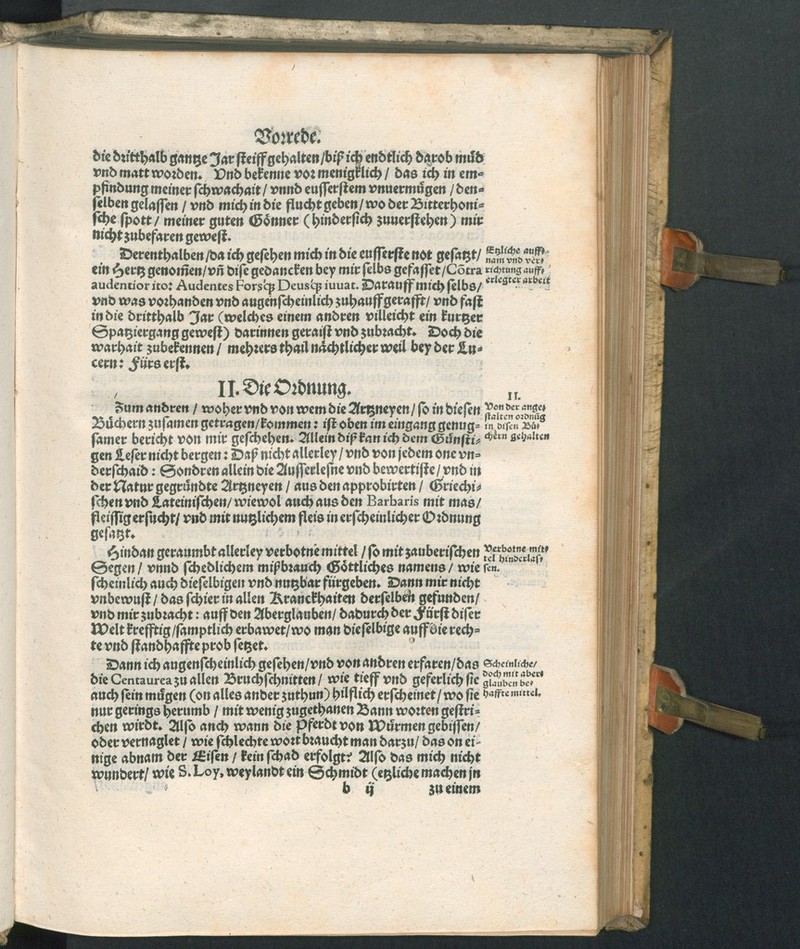 Vorrede.
die dritthalb gantze Jar steiff gehalten/biß ich endtlich darob müd
vnd matt worden. Vnd bekenne vor menigklich/ das ich in em⸗
pfindung meiner schwachait/ vnnd eusserstem vnuermügen/den⸗
selben gelassen/ vnd mich in die flucht geben/wo der Bitterhoni⸗
sche spott/ meiner guten Gönner (hindersich zuuerstehen) mir
nicht zubefaren gewest.
Derenthalben/da ich gesehen mich in die eusserste not gesatzt/
ein Hertz genom̃en/vñ dise gedancken bey mir selbs gefasset/Cōtra
audentior ito: Audentes Forsq́; Deusq́; iuuat. Darauff mich selbs/
vnd was vorhanden vnd augenscheinlich zuhauff gerafft/ vnd fast
in die dritthalb Jar (welches einem andren villeicht ein kurtzer
Spatziergang gewest) darinnen geraist vnd zubracht. Doch die
warhait zubekennen/ mehrers thail nächtlicher weil bey der Lu⸗
cern: Fürs erst.
Etzliche auff⸗
nam vnd ver⸗
richtung auff⸗
erlegter arbeit
II. Die Ordnung.
Zum andren/ woher vnd von wem die Artzneyen/so in diesen
Büchern zusamen getragen/kommen: ist oben im eingang genug⸗
samer bericht von mir geschehen. Allein diß kan ich dem Günsti⸗
gen Leser nicht bergen: Daß nicht allerley/ vnd von jedem one vn⸗
derschaid: Sondren allein die Ausserlesne vnd bewertiste/ vnd in
der Natur gegründte Artzneyen/ aus den approbirten/ Griechi⸗
schen vnd Lateinischen/ wiewol auch aus den Barbaris mit mas/
fleissig ersucht/ vnd mit nutzlichem fleis in erscheinlicher Ordnung
gesatzt.
II.
Von der ange⸗
stalten ordnūg
in disen Bü⸗
chern gehalten
Hindan geraumbt allerley verbotne mittel/so mit zauberischen
Segen/ vnnd schedlichem mißbrauch Göttliches namens/ wie
scheinlich auch dieselbigen vnd nutzbar fürgeben. Dann mir nicht
vnbewust/ das schier in allen Kranckhaiten derselben gefunden/
vnd mir zubracht: auff den Aberglauben/ dadurch der Fürst diser
Welt krefftig/samptlich erbawet/wo man dieselbige auff die rech⸗
te vnd standhaffte prob setzet.
Verbotne mit⸗
tel hinderlas⸗
sen.
Dann ich augenscheinlich gesehen/vnd von andren erfaren/das
die Centaurea zu allen Bruchschnitten/ wie tieff vnd geferlich sie
auch sein mügen (on alles ander zuthun) hilflich erscheinet/ wo sie
nur gerings herumb/ mit wenig zugethanen Bann worten gestri⸗
chen wirdt. Also anch wann die Pferdt von Würmen gebissen/
oder vernaglet/ wie schlechte wort braucht man darzu/ das on ei⸗
nige abnam der Eisen/ kein schad erfolgt? Also das mich nicht
wundert/ wie S. Loy, weylandt ein Schmidt (etzliche machen jn
Scheinliche/
doch mit aber⸗
glauben be⸗
haffte mittel.
b ij zu einem